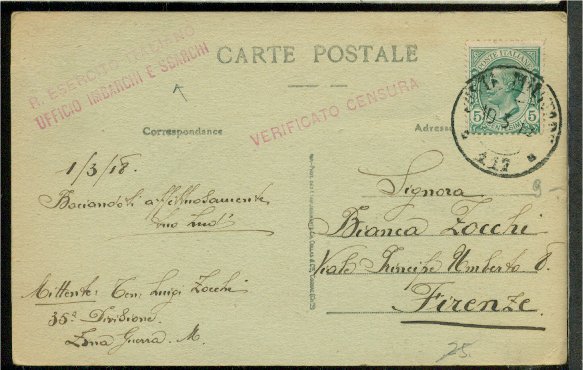 R. ESERCITO ITALIANO
UFFICIO IMBARCHI E SBARCHI
CARTE POSTALE
POSTE ITALIANE
5 5
POSTA MILITARE
117
VERIFICATO CENSURA
Correspondance
Adresse
1/3/18.
Baciandoti affettuosamente
tuo
Mittente: Ten. Luigi Zocchi
35ª Divisione
Zona Guerra. M.
Signora
Bianca Zocchi
Viale Principe Umberto 8.
Firenze.
9 -
25.